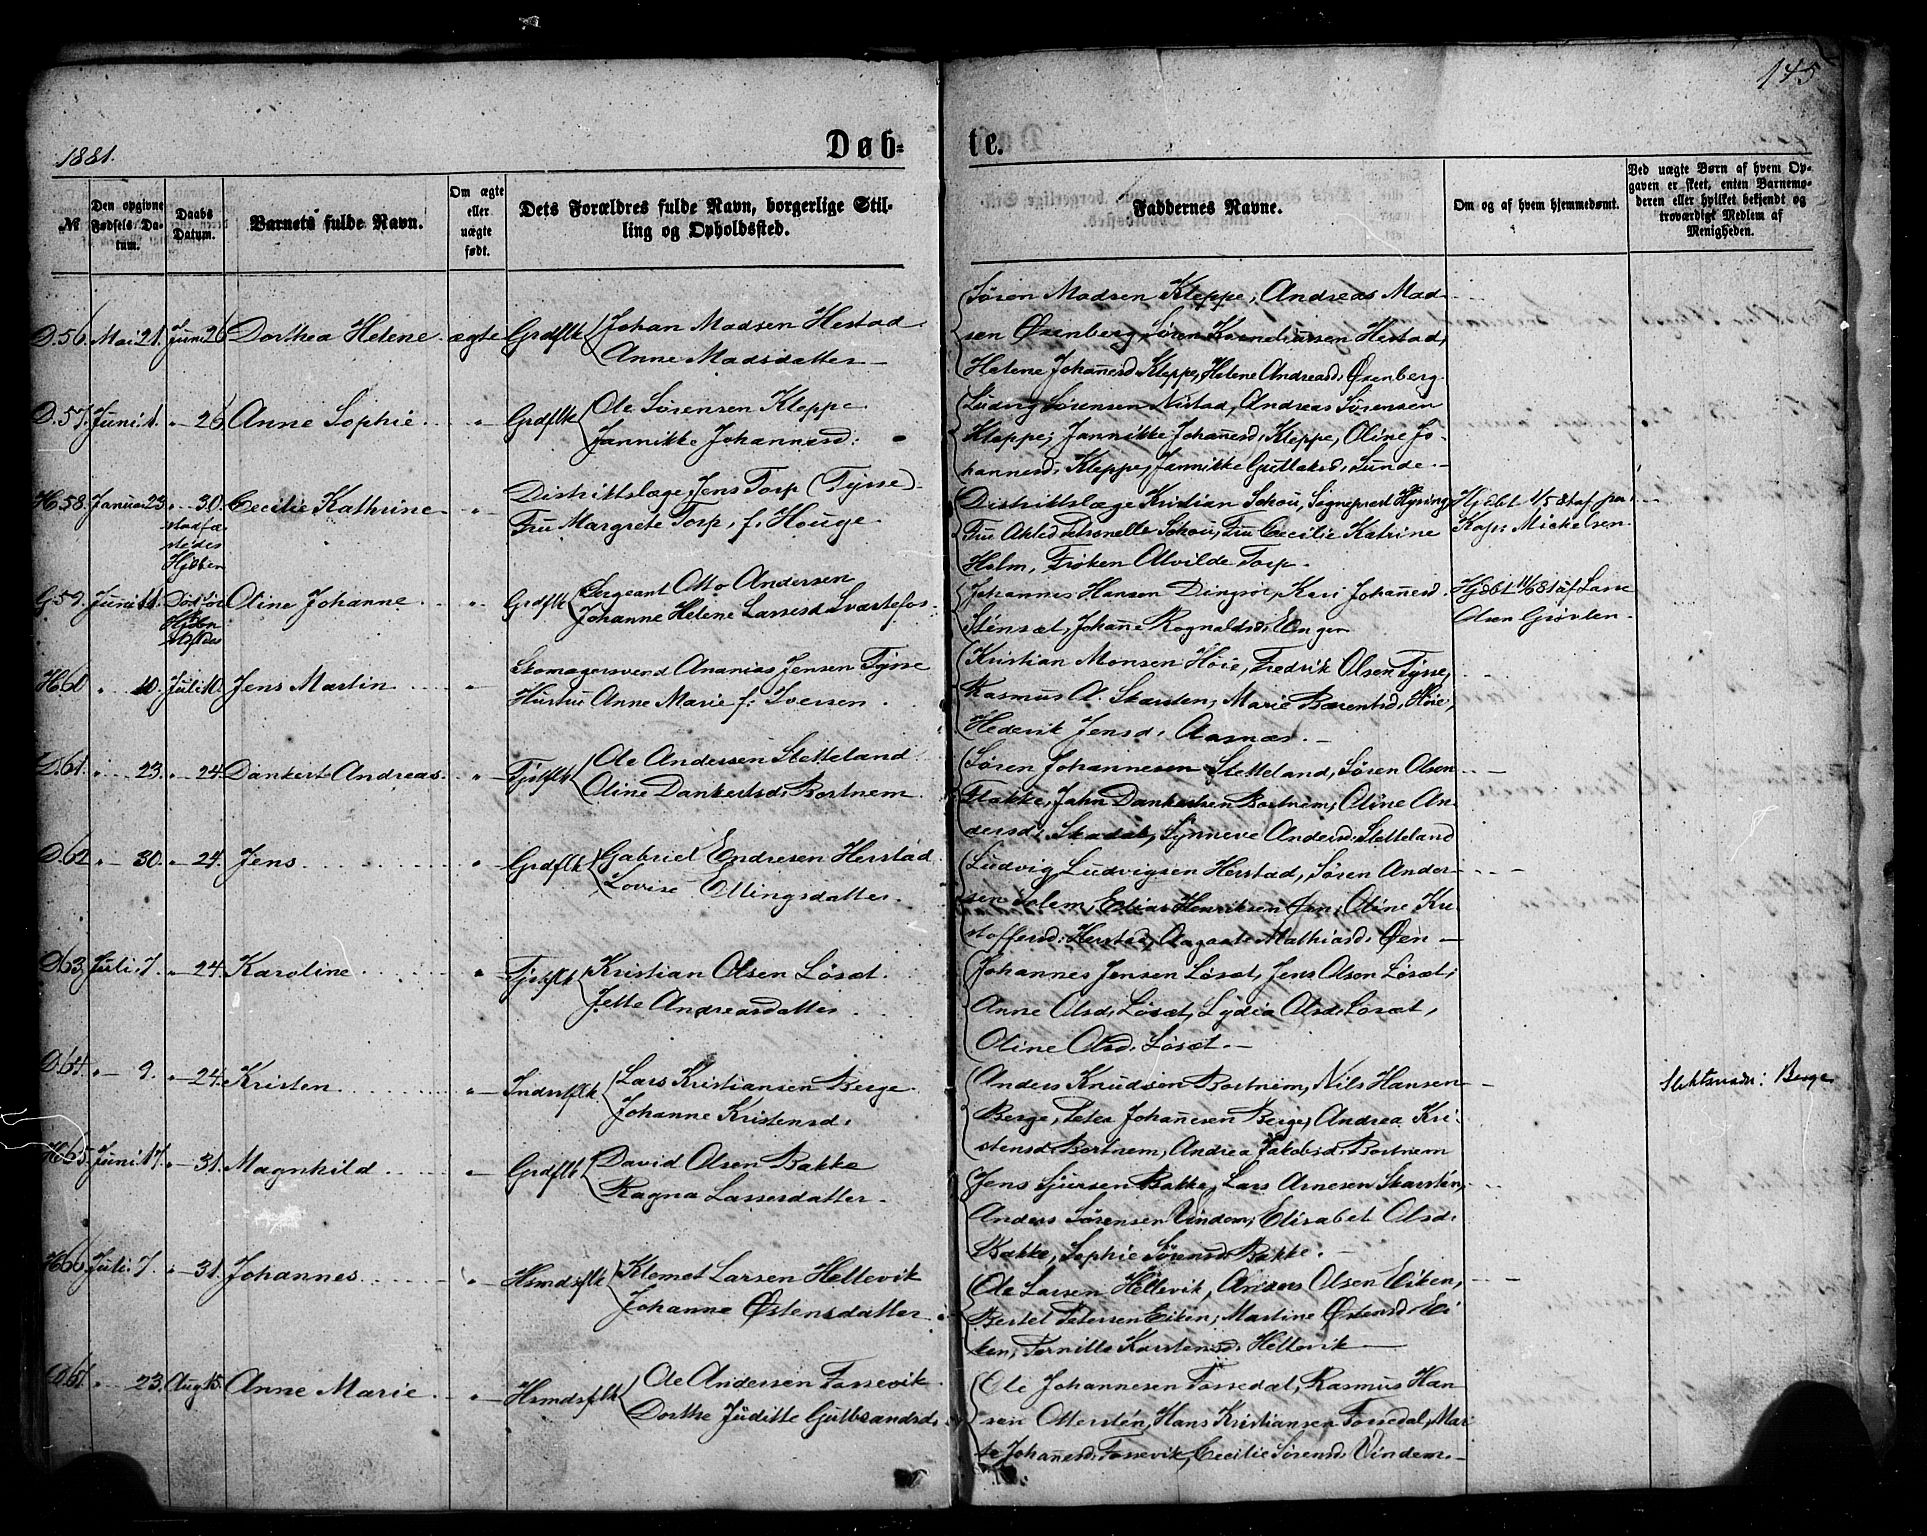 145
1881.
Døb-
te.
№
Den opgivne Fødsels Datum.
Daabs Datum.
Barnets fulde Navn.
Om ægte eller uægte født.
Dets Forældres fulde Navn, borgerlige Stilling og Opholdssted.
Faddernes Navne.
Om og af hvem hjemmedøbt.
Ved uægte Børn af hvem Opgaven er skeet, enten Barnemoderen eller hvilket bekjendt og troværdigt Medlem af Menigheden.
D. 56. Mai 21. Juni 26 Dorthea Helene. ægte Grdflk Johan Madsen Hestad
Anne Madsdatter
Søren Madsen Kleppe, Andreas Mad-
sen Øsenberg, Søren Korneliussen Hestad,
Helene Johannesd. Kleppe, Helene Andreasd. Øsenberg.
D. 57. Juni 1. " 26 Anne Sophie " Grdflk Ole Sørensen Kleppe
Jannikke Johannesd:
Ludvig Sørensen Nistad, Andreas Sørensen
Kleppe, Jannikke Johannesd. Kleppe, Oline Jo-
hannesd. Kleppe, Jannikke Guttaksd. Lunde.
H. 58. Januar 23. " 30. Cecilie Kathrine " Distriktslæge Jens Torp (Tysse)
stadfæ
stedes
Hjdben
Fru Margrete Torp, f. Houge.
Distriktslæge Kristian Schou, Sogneprest Hysing
Fru Schou, Fru Cecilie Katrine
Holm, Frøken Alvilde Torp.
Hjdbt 1/5 81 af per.
Kap: Michelsen
G. 59. Juni 11. Død før Oline Johanne " Grdflk Sergeant Otto Andersen
Johanne Helene Larsesd. Svartefos
Johannes Hansen Dingsør, Kari Johannesd.
Stensæt, Johanne Rognaldsd. Enger
Hjdbt 11/6 81 af Lasse
Olsen Grøvlen
H. 60 " 10. Juli 10. Jens Martin " Skomagersvend Ananias Jensen Tysse
Hustru Anne Marie f. Iversen.
Kristian Monsen Høie, Fredrik Olsen Tysse,
Rasmus O. Skarsten, Marie Berentsd. Høie,
Hedevik Jensd. Aasnæs.
D. 61. " 23. " 24. Dankert Andreas " Tjstflk Ole Andersen Stetteland
Oline Dankertsd. Bortnem
Søren Johannesen Stetteland, Søren Olsen
Flakke, John Dankertsen Bortnem, Oline An-
dersd. Skadal, Synneve Andersd. Stetteland
D. 62 " 30. " 24. Jens " Grdflk Gabriel Endresen Herstad
Lovise Ellingsdatter.
Ludvig Ludvigsen Herstad, Søren Ander-
sen Solem, Elias Henriksen Øen, Oline Kri
stoffersd. Herstad, Aagaate Mathiasd. Øen
D. 63. Juli 7. " 24. Karoline " Tjstflk Kristian Olsen Løsæt.
Jette Andreasdatter
Johannes Jensen Løsæt, Jens Olsen Løsæt,
Anne Olsd. Løsæt, Lydia Olsd. Løsæt,
Oline Olsd. Løsæt.
D. 64. " 9. " 24. Kristen " Indrstflk Lars Kristiansen Berge
Johanne Kristensd.
Anders Knudsen Bortnem, Nils Hansen
Berge, Peter Johanesen Berge, Andrea Kri-
stensd. Bortnem, Andrea Jakobsd. Bortnem
Slektsnavn: Berge
H. 65. Juni 17. " 31. Magnhild " Grdflk David Olsen Bakke
Ragna Lassesdatter
Jens Sjursen Bakke, Lars Arnesen Skarsten,
Anders Sørensen Vindem, Elisabet Olsd.
Bakke, Sophie Sørensd. Bakke.
H. 66. Juli 7. " 31. Johannes " Hsmdsflk Klemet Larsen Hellevik
Johanne Østensdatter
Ole Larsen Hellevik, Anders Olsen Eiken,
Bertel Petersen Eiken, Martine Østensd. Ei
ken, Pernille Karstensd. Hellevik
D. 67. " 23. Aug 15. Anne Marie " Hsmdsflk Ole Andersen Fossevik
Dorthe Juditte Gulbrandsd.
Ole Johannesen Fossedal, Rasmus Han
sen Ottersten, Hans Kristiansen Fossedal, Mar
te Johannesd. Fossevik, Cecilie Sørensd. Vindem.